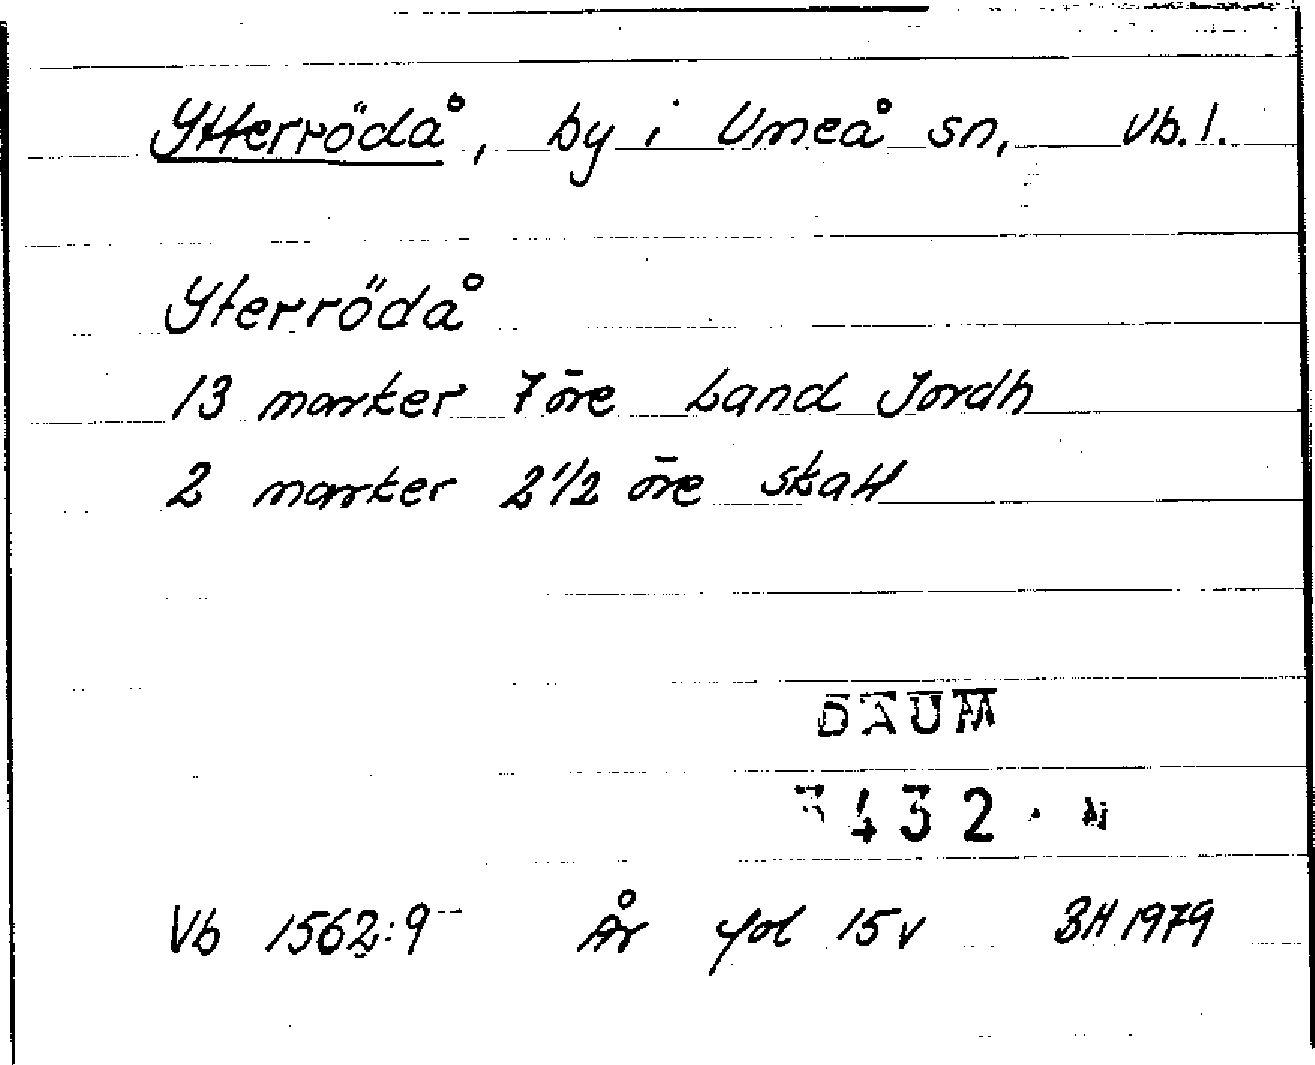 Ytterrödå, by i Umeå sn, Vb. l.
Yterrödå
13 marker 7 öre Land Jordh
2 marker 2 1/2 öre skatt
DAUM
3432 · N
Vb 1562:9 År fol 15v BH 1979